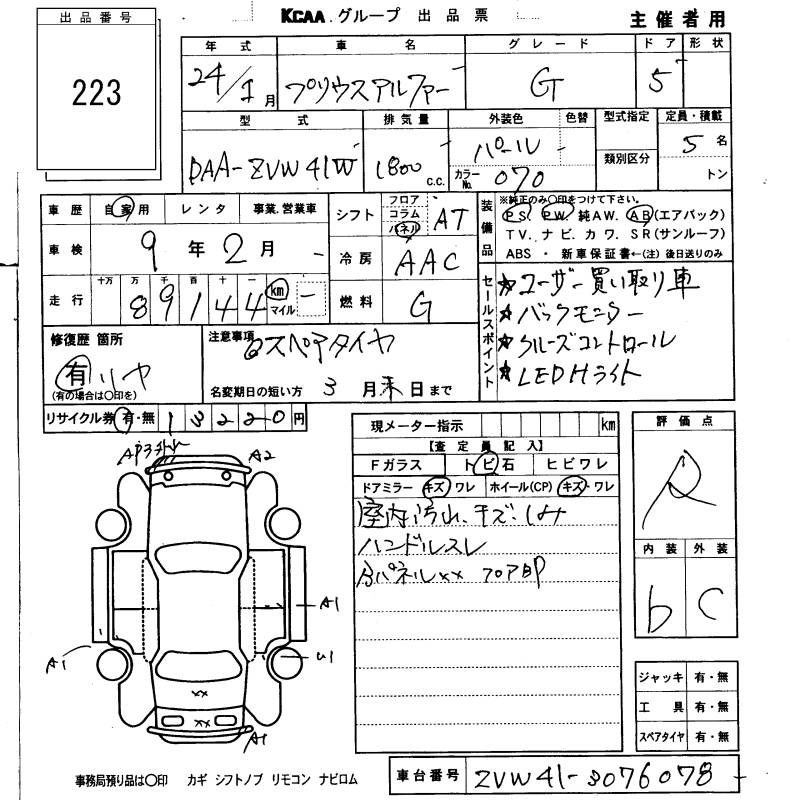 出品番号
KCAA.グループ 出品票
主催者用
223
年式 車名 グレード ドア 形状
24/1月 プリウスアルファー G 5
型式 排気量 外装色 色替 型式指定 定員・積載
DAA-ZVW41W 1800 c.c. パール 5名
カラーNo. 070 類別区分 トン
車歴 自家用 レンタ 事業.営業車
シフト フロア コラム パネル AT
車検 9年2月
冷房 AAC
走行 十万 万 千 百 十 一
89144 km マイル
燃料 G
装備品
※純正のみ○印をつけて下さい。
PS. PW. 純AW. AB(エアバック)
TV. ナビ. カワ. SR(サンルーフ)
ABS ・ 新車保証書←(注)後日送りのみ
セールスポイント
★ユーザー買い取り車
★バックモニター
★クルーズコントロール
★LEDHライト
修復歴 箇所
有 リヤ
(有の場合は○印を)
注意事項
スペアタイヤ
名変期日の短い方 3月末日まで
リサイクル券 有・無 13220円
現メーター指示 km
【査定員記入】
Fガラス トビ石 ヒビワレ
ドアミラー キズ ワレ ホイール(CP) キズ・ワレ
室内汚れ、キズ・しみ
ハンドルスレ
パネルxx フロア
評価点
R
内装 外装
b C
A2
A1
A1
U1
xx
xx
A1
ジャッキ 有・無
工具 有・無
スペアタイヤ 有・無
事務局預り品は○印 カギ シフトノブ リモコン ナビロム
車台番号 ZVW41-3076078